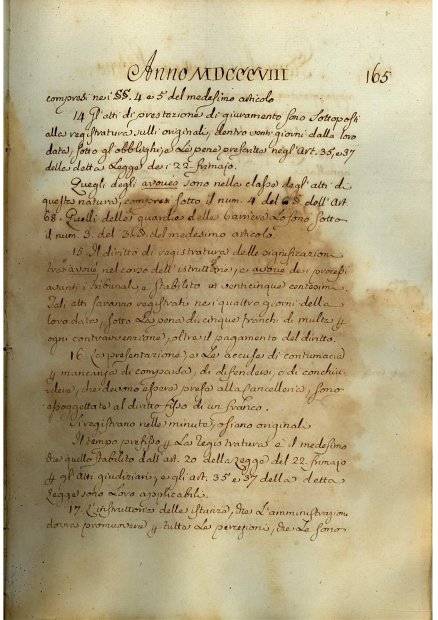 Anno MDCCCVIII 165
compresi nei §§. 4 e 5 del medesimo articolo
14. Gli atti di prestazione di giuramento sono sottoposti
alla registratura sulli originali, dentro venti giorni dalla loro
data, sotto gli obblighi, e le pene prescritte negl'Art. 35, e 37
della detta Legge dei 22 frimajo.
Quegli degli avoués sono nella classe degl'atti di
questa natura, compresi sotto il num. 4 del 6 §. dell'Art.
68. Quelli delle guardie delle barriere lo sono sotto
il num. 3. del 3. §. del medesimo articolo.
15. Il diritto di registratura delle significazioni
tra avoué nel corso dell'istruttione, e dei processi
avanti i tribunali, è stabilito in venticinque centesimi.
Tali atti saranno registrati nei quattro giorni della
loro data, sotto la pena di cinque franchi di multa p
ogni contravvenzione, oltre il pagamento del diritto.
16. La presentazione, e le accuse di contumacia
p mancanza di comparsa, di difendersi, o di conchiu-
dere, che devono essere prese alla Cancelleria, sono
assoggettate al diritto fisso di un franco.
Si registrano nelle minute, ossiano originali.
Il tempo prefisso p la registratura è il medesimo
che quello stabilito dall'art. 20 della Legge del 22. frimajo
p gli atti giudiziarj, e gli art. 35 e 37 della detta
Legge sono loro applicabili.
17. L'instruttoria delle istanze, che l'amministrazione
dovrà promuovere p tutte le percezioni, che le sono